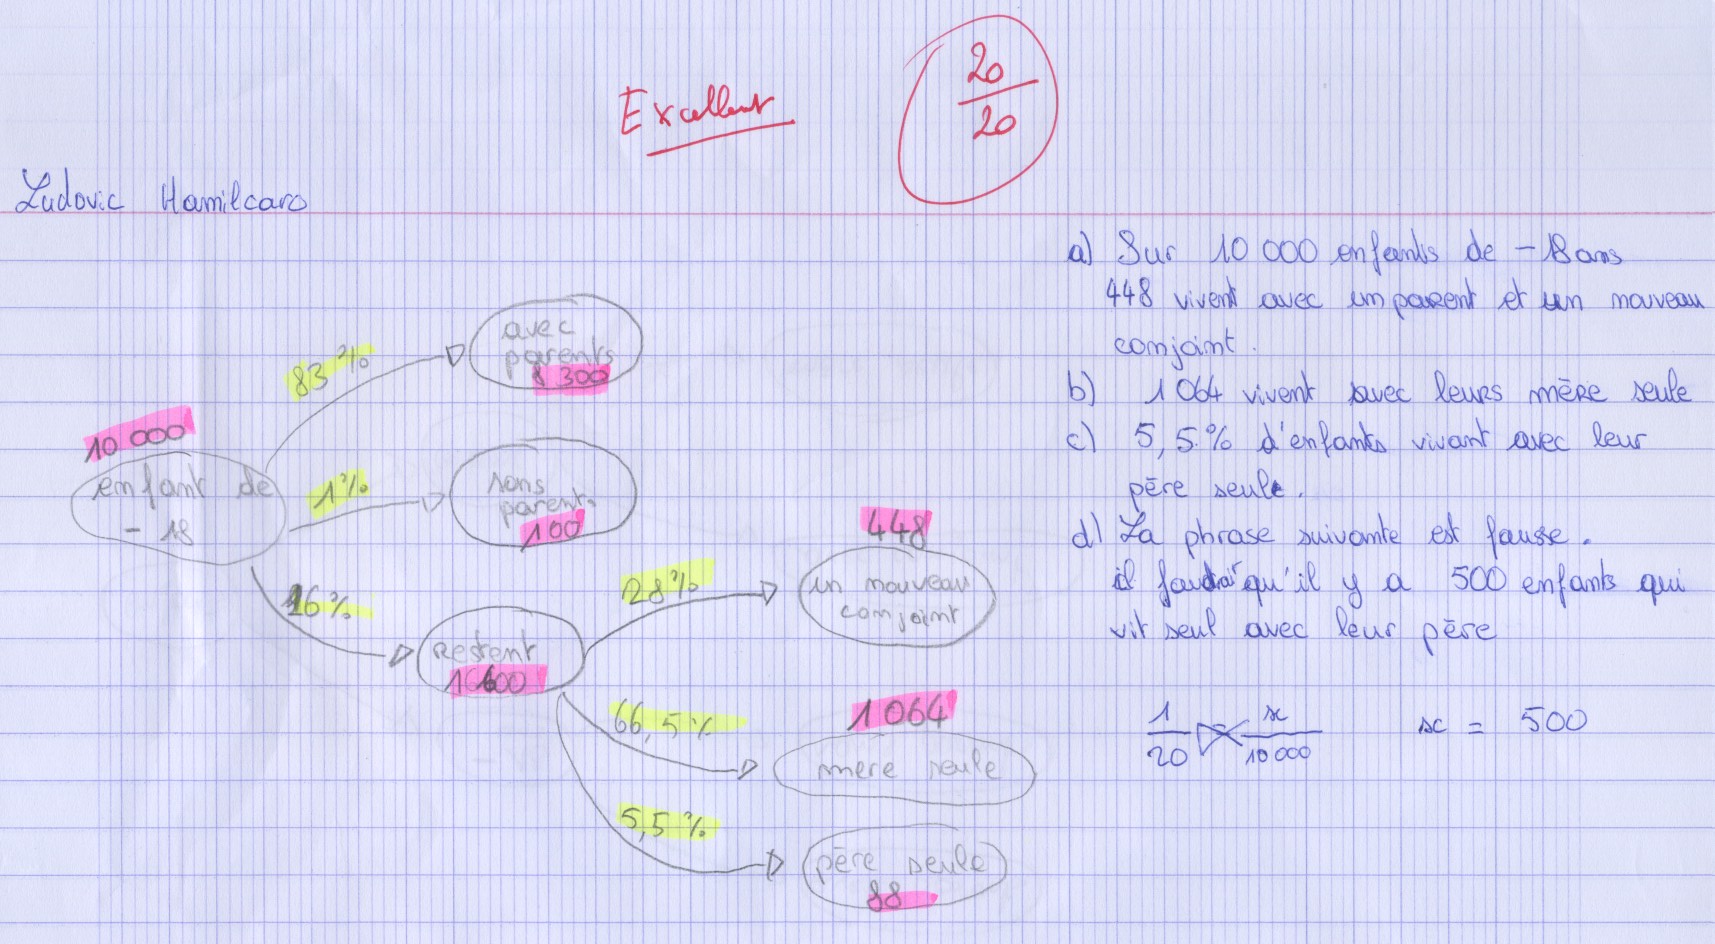 Excellent
20
20
Ludovic Hamilcaro
10 000
enfant de
- 18
83 %
avec
parents
8 300
1 %
sans
parents
100
16 %
Restent
1600
28 %
448
un nouveau
conjoint
66,5 %
1 064
mère seule
5,5 %
père seule
88
a) Sur 10 000 enfants de - 18 ans
448 vivent avec un parent et un nouveau
conjoint.
b) 1 064 vivent avec leurs mère seule
c) 5,5 % d'enfants vivant avec leur
père seule.
d) La phrase suivante est fausse.
il faudrait qu'il y a 500 enfants qui
vit seul avec leur père
1/20 = x/10 000 x = 500